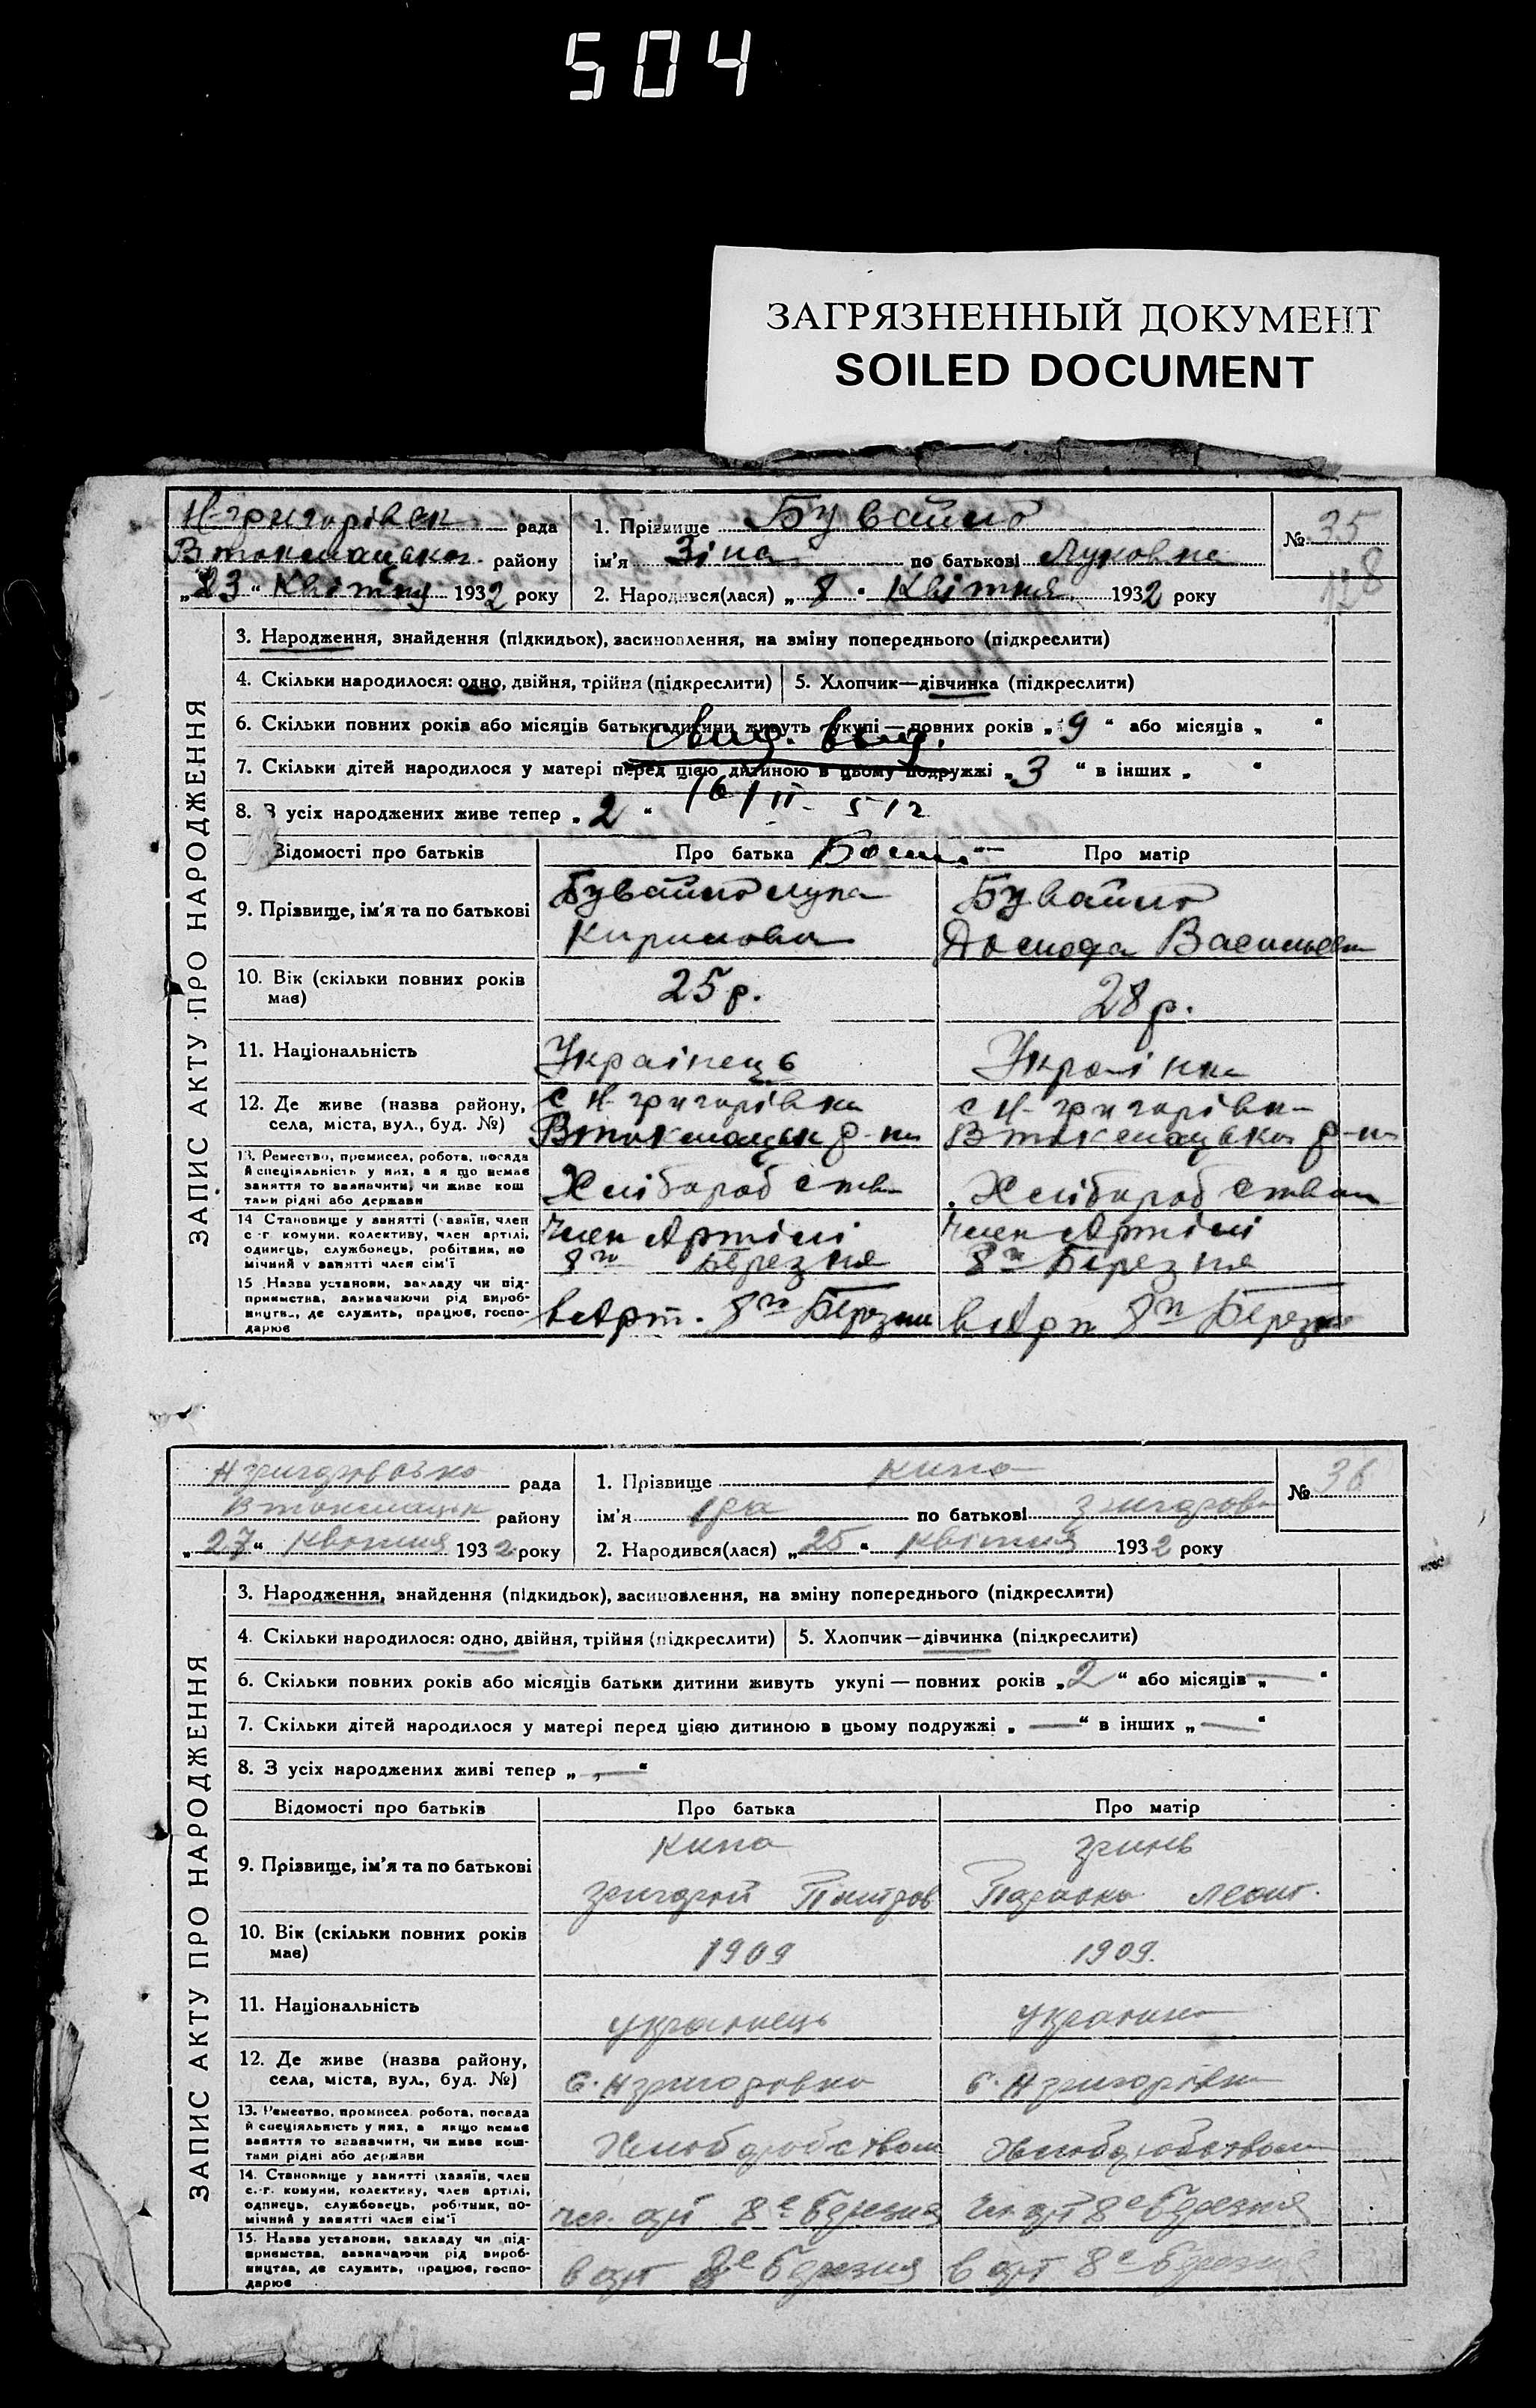 504
ЗАГРЯЗНЕННЫЙ ДОКУМЕНТ
SOILED DOCUMENT
ЗАПИС АКТУ ПРО НАРОДЖЕННЯ
Н-григорівск рада
Втокмацьког району
„23“ Квітня 1932 року
1. Прізвище Бувайло
ім'я Зіна по батькові Луковна
2. Народився(лася) „8“ Квітня 1932 року
№ 35
3. Народження, знайдення (підкидьок), засиновлення, на зміну попереднього (підкреслити)
4. Скільки народилося: одно, двійня, трійня (підкреслити) 5. Хлопчик—дівчинка (підкреслити)
6. Скільки повних років або місяців батьки дитини живуть укупі — повних років „9“ або місяців „ “
7. Скільки дітей народилося у матері перед цією дитиною в цьому подружжі „3“ в інших „ “
8. З усіх народжених живе тепер „2“
Відомості про батьків Про батька Про матір
9. Прізвище, ім'я та по батькові
Бувайло Лука
Кирилович
Бувайло
Василівн
10. Вік (скільки повних років має)
25 р. 28 р.
11. Національність
Українець Українка
12. Де живе (назва району, села, міста, вул., буд. №)
с Н-григорівка
Втокмацьк р-ну
с Н-григорівк
Втокмацького р-ну
13. Ремество, промисел, робота, посада
й спеціальність у них, а якщо немає
заняття то зазначити, чи живе кош
тами рідні або держави
Хліборобств Хліборобством
14 Становище у занятті (хазяїн, член
с.-г. комуни, колективу, член артілі,
одинець, службовець, робітник, по
мічний у занятті член сім'ї
Член Артілі
8го Березня
Член Артілі
8го Березня
15 Назва установи, закладу чи під-
приємства, зазначаючи рід вироб-
ництва, де служить, працює, госпо-
дарює
в Арт. 8го Березня в Арт 8го Березня
ЗАПИС АКТУ ПРО НАРОДЖЕННЯ
Нгригоровсько рада
Втокмацьк району
„27“ Квітня 1932 року
1. Прізвище Кипа
ім'я Іра по батькові Григоровн
2. Народився(лася) „25“ Квітня 1932 року
№ 36
3. Народження, знайдення (підкидьок), засиновлення, на зміну попереднього (підкреслити)
4. Скільки народилося: одно, двійня, трійня (підкреслити) 5. Хлопчик—дівчинка (підкреслити)
6. Скільки повних років або місяців батьки дитини живуть укупі — повних років „2“ або місяців „—“
7. Скільки дітей народилося у матері перед цією дитиною в цьому подружжі „—“ в інших „—“
8. З усіх народжених живі тепер „—“
Відомості про батьків Про батька Про матір
9. Прізвище, ім'я та по батькові
Кипа
Григорій
Гринь
10. Вік (скільки повних років має)
1909 1909.
11. Національність
українець українка
12. Де живе (назва району, села, міста, вул., буд. №)
с. Нгригоровка с. Нгригорівка
13. Ремество, промисел, робота, посада
й спеціяльність у них, а якщо немає
заняття то зазначити, чи живе кош-
тами рідні або держави
Хлиоборобством Хлиоборобством
14. Становище у занятті (хазяїн, член
с.-г. комуни, колективу, член артілі,
одинець, службовець, робітник, по-
мічний у занятті член сім'ї
чл. арт 8е березня чл. арт 8е березня
15. Назва установи, закладу чи під-
приємства, зазначаючи рід вироб-
ництва, де служить, працює, госпо-
дарює
в арт 8е березня в арт 8е березня